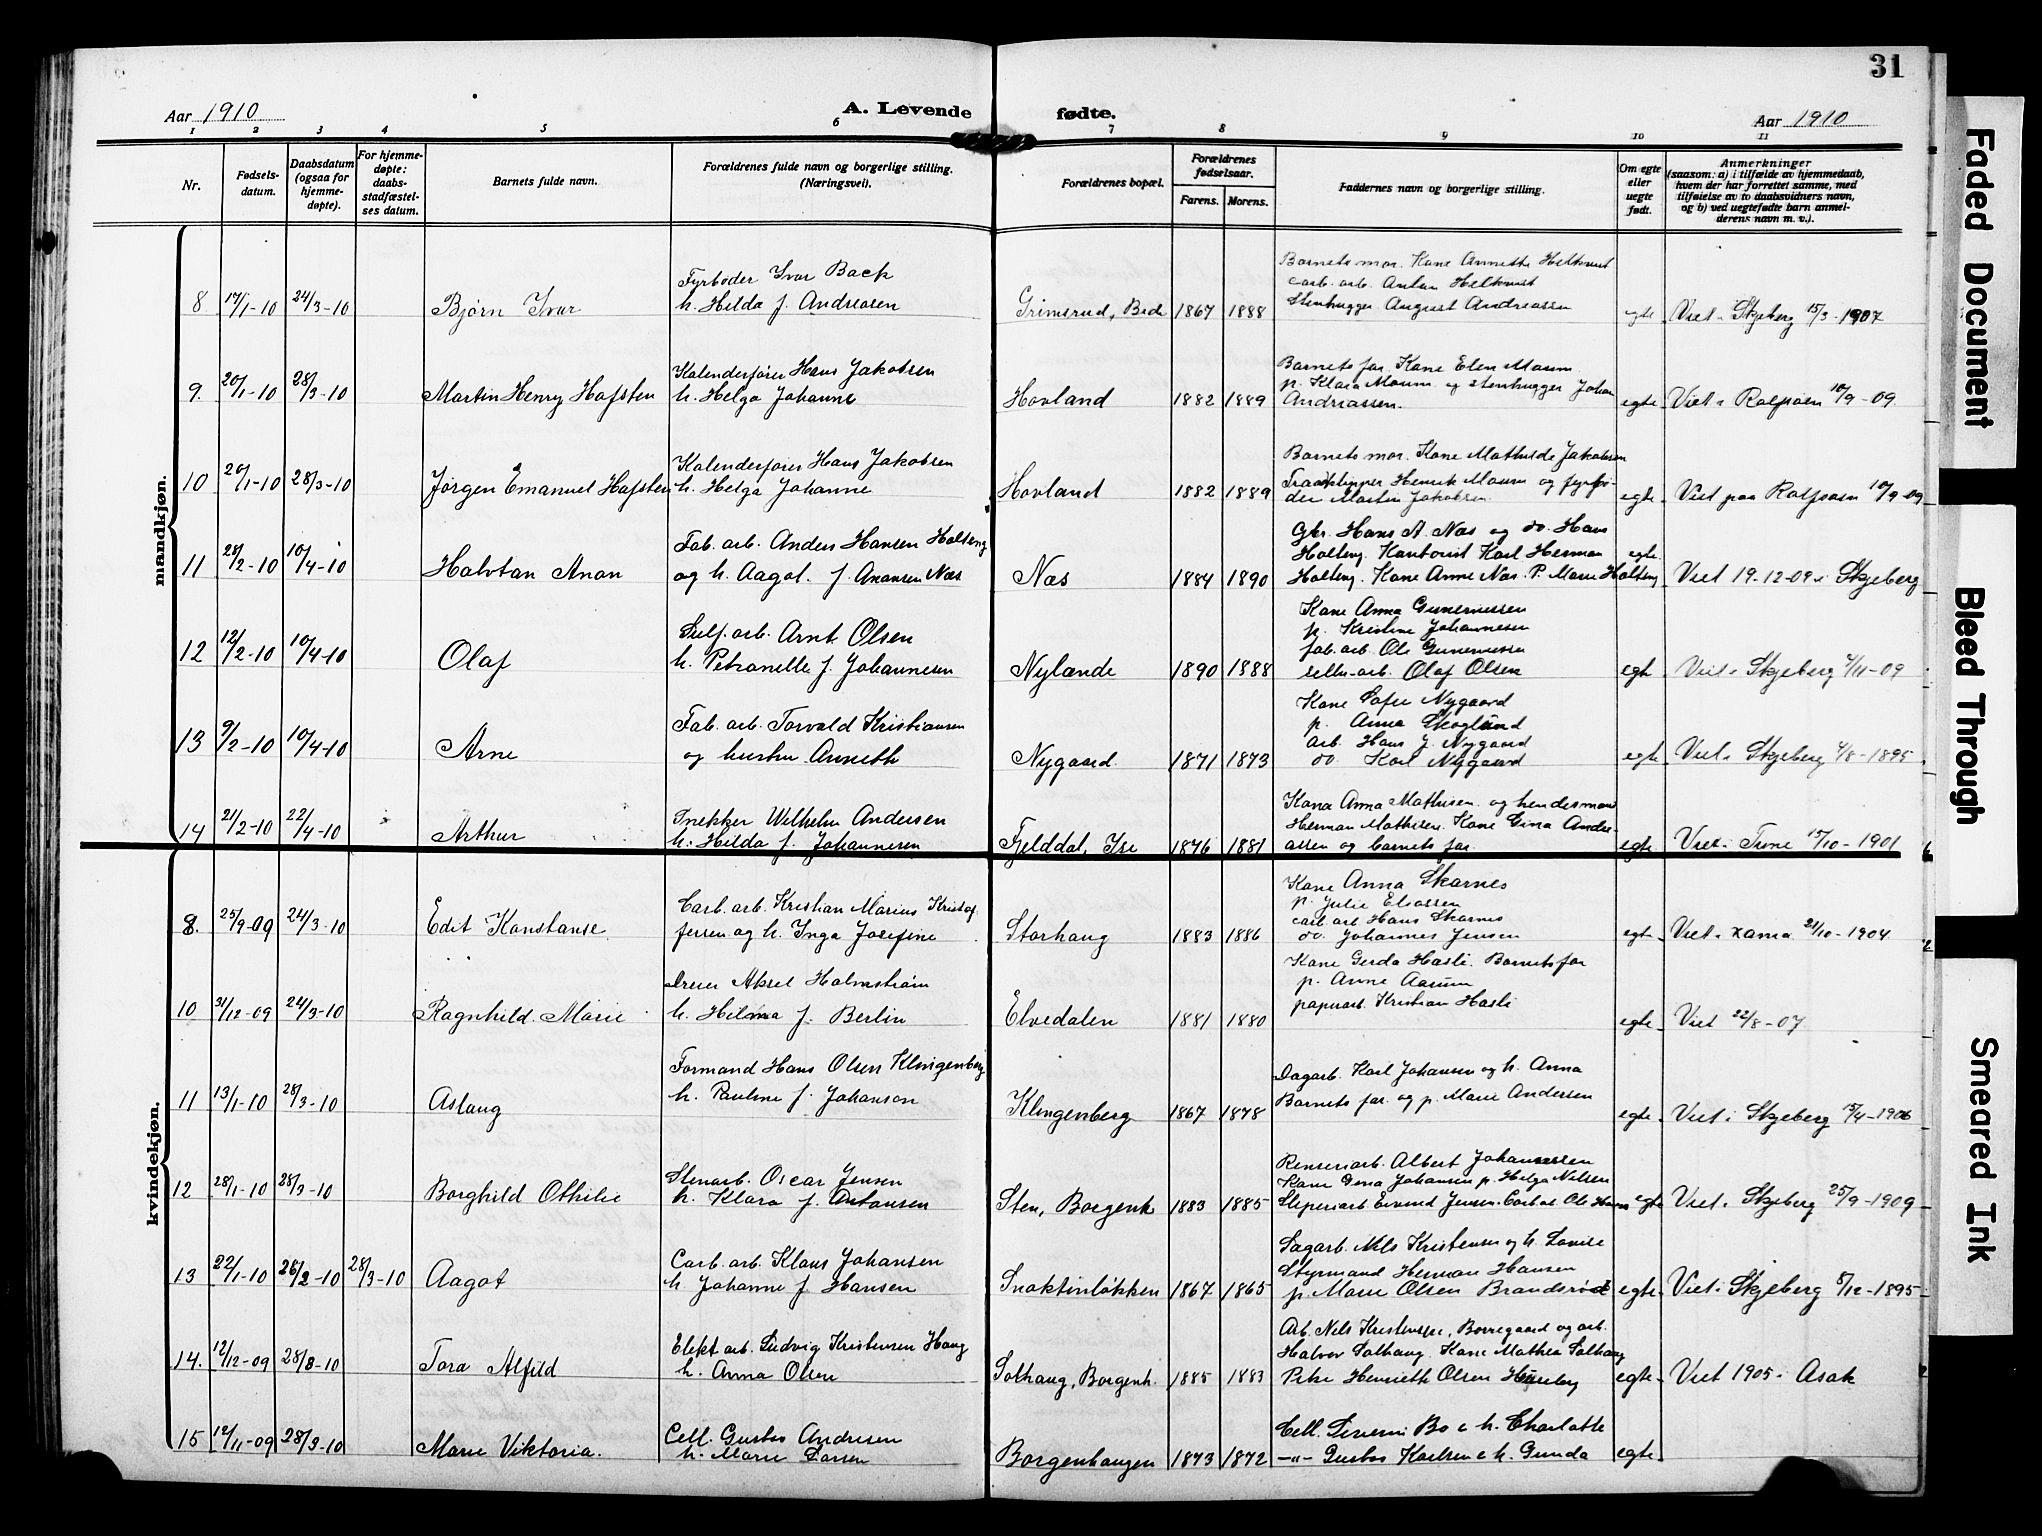 31
Aar 1910
A. Levende fødte.
Aar 1910
1 2 3 4 5 6 7 8 9 10 11
Nr.
Fødsels-
datum.
Daabsdatum
(ogsaa for
hjemme-
døpte).
For hjemme-
døpte:
daabs-
stadfæstel-
ses datum.
Barnets fulde navn.
Forældrenes fulde navn og borgerlige stilling.
(Næringsvei).
Forældrenes bopæl.
Forældrenes
fødselsaar.
Farens. Morens.
Faddernes navn og borgerlige stilling.
Om egte
eller
uegte
født.
Anmerkninger
(saasom: a) i tilfælde av hjemmedaab,
hvem der har forrettet samme, med
tilføielse av to daabsvidners navn,
og b) ved uegtefødte barn anmel-
derens navn m. v.).
mandkjøn.
Fyrbøder Ivar Back
h. Hilda f. Andreasen
8 17/1-10 24/3-10 Bjørn Ivar
Grimsrud, 1867 1888
Barnets mor. Kone Annette Helkvist
carb. arb. Anton Helkvist
Stenhugger August Andreassen
egte Viet i Skjeberg 15/3-1907
Kalenderfører Hans Jakobsen
h. Helga Johanne
9. 20/1-10 28/3-10 Martin Henry Hafsten
Hovland 1882 1889
Barnets far. Kone Elen Maum
p. Klara Maum og stenhugger Johan
Andreassen.
egte Viet i Rolfsøen 10/9-09
Kalenderfører Hans Jakobsen
h. Helga Johanne
10 20/1-10 28/3-10 Jørgen Emanuel Hafsten
Hovland 1882 1889
Barnets mor. Kone Mathilde Jakobsen
Henrik Maum og fyrbø-
der Martin Jakobsen
egte Viet paa Rolfsøen 10/9-09
Fab. arb. Anders Hansen Holteng
og h. Aagot f. Anansen Næs
11 28/2-10 10/4-10 Halvtan Anan
Næs 1884 1890
Gbr. Hans A. Næs og do. Hans
Holteng. Kontorist Karl Herman
Holteng. Kone Anne Næs. P. Marie Holteng
egte Viet 19-12-09 i Skjeberg
Sulf. arb. Arnt Olsen
h. Petranelle f. Johannesen
12 12/2-10 10/4-10 Olaf
Nylænde 1890 1888
Kone Anna Gunerussen
p. Kristine Johannesen
fab. arb. Ole Gunerussen
cellu-arb. Olaf Olsen
egte Viet i Skjeberg 4/11-09
Fab. arb. Torvald Kristiansen
og hustru Annette
13 9/2-10 10/4-10 Arne
Nygaard 1871 1873
Kone Sofie Nygaard
p. Anna Skoglund
arb. Hans J. Nygaard
do. Karl Nygaard
egte Viet i Skjeberg 4/8-1895
Snekker Wilhelm Andersen
h. Hilda f. Johannesen
14 21/2-10 22/4-10 Arthur
Fjelddal, Ise 1876 1881
Kona Anna Mathisen og hendes mand
Herman Mathisen. Kone Gina Andre-
assen og barnets far
egte Viet i Tune 15/10-1901
kvindekjøn.
Carb. arb. Kristian Marius Kristof
fersen og h. Inga Josefine
8. 25/9-09 24/3-10 Edit Konstanse
Storhaug 1883 1886
Kone Anna Skarnes
p. Julie Eliassen
carb arb Hans Skarnes
do. Johannes Jensen
egte Viet i 21/10-1904
Dreier Aksel Holmstrøm
h. Hilma f. Berlin
10 31/12-09 24/3-10 Ragnhild Marie
Elvedalen 1881 1880
Kone Gerda Hasle. Barnets far
p. Anne Aarum
papirarb. Kristian Hasle
egte Viet 22/8-07
Formand Hans Olsen Klingenberg
h. Pauline f. Johanson
11 13/1-10 28/3-10 Aslaug
Klingenberg 1867 1878
Dagarb. Karl Johansen og h. Anna
Barnets far og p. Marie Andersen
egte Viet i Skjeberg 15/4-1906
Stenarb. Oscar Jensen
h. Klara f. Antonsen
12 28/1-10 28/3-10 Borghild Othilie
Sten, Borgenh 1883 1885
Renseriarb. Albert Johannessen
Kone Gina Johansen p. Helga Nilsen
Sliperiarb Eivind Jensen. Carb.arb Ole Hansen
egte Viet i Skjeberg 25/9-1909
Carb. arb. Klaus Johansen
h. Johanne f. Hansen
13 22/1-10 26/2-10 28/3-10 Aagot
Snoktinløkken 1867 1865
Sagarb. Nils Kristensen og h. Lovise
Styrmand Herman Hansen
p. Marie Olsen Brandsrød
egte Viet i Skjeberg 8/12-1895
Elekt arb. Ludvig Kristensen Haug
h. Anna Olsen
14. 12/12-09 28/3-10 Tora Alfild
Solhaug, Borgenh. 1885 1883
Arb. Nils Kristensen, Borregaard og arb.
Halvor Solhaug. Kone Mathea Solhaug
Pike Henriette Olsen Huseby
egte Viet 1905 i Asak
Cell. Gustav Andresen
h. Marie Larsen
15 12/11-09 28/3-10 Marie Viktoria.
Borgenhaugen 1873 1872
Cell. Severin Bo & h. Charlotte
-"- Gustav Karlsen & h. Gunda
egte
Faded Document
Bleed Through
Smeared Ink